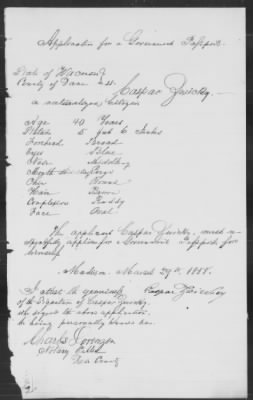 Application for a Government Passport.
State of Wisconsin
County of Dane ss.
Caspar Zwicky
a naturalized Citizen
Age 40 Years
Stature 5 feet 6 Inches
Forehead Broad
Eyes Blue
Nose Middling
Mouth Large
Chin Round
Hair Brown
Complexion Ruddy
Face Oval
The applicant Caspar Zwicky, would
respectfully apply for a Government Passport for
himself
Madison March 29th 1888.
I attest the genuineness Caspar Zwicky
of the Signature of Caspar Zwicky
who signed the above application.
he being personally known
Notary Public
Dane County